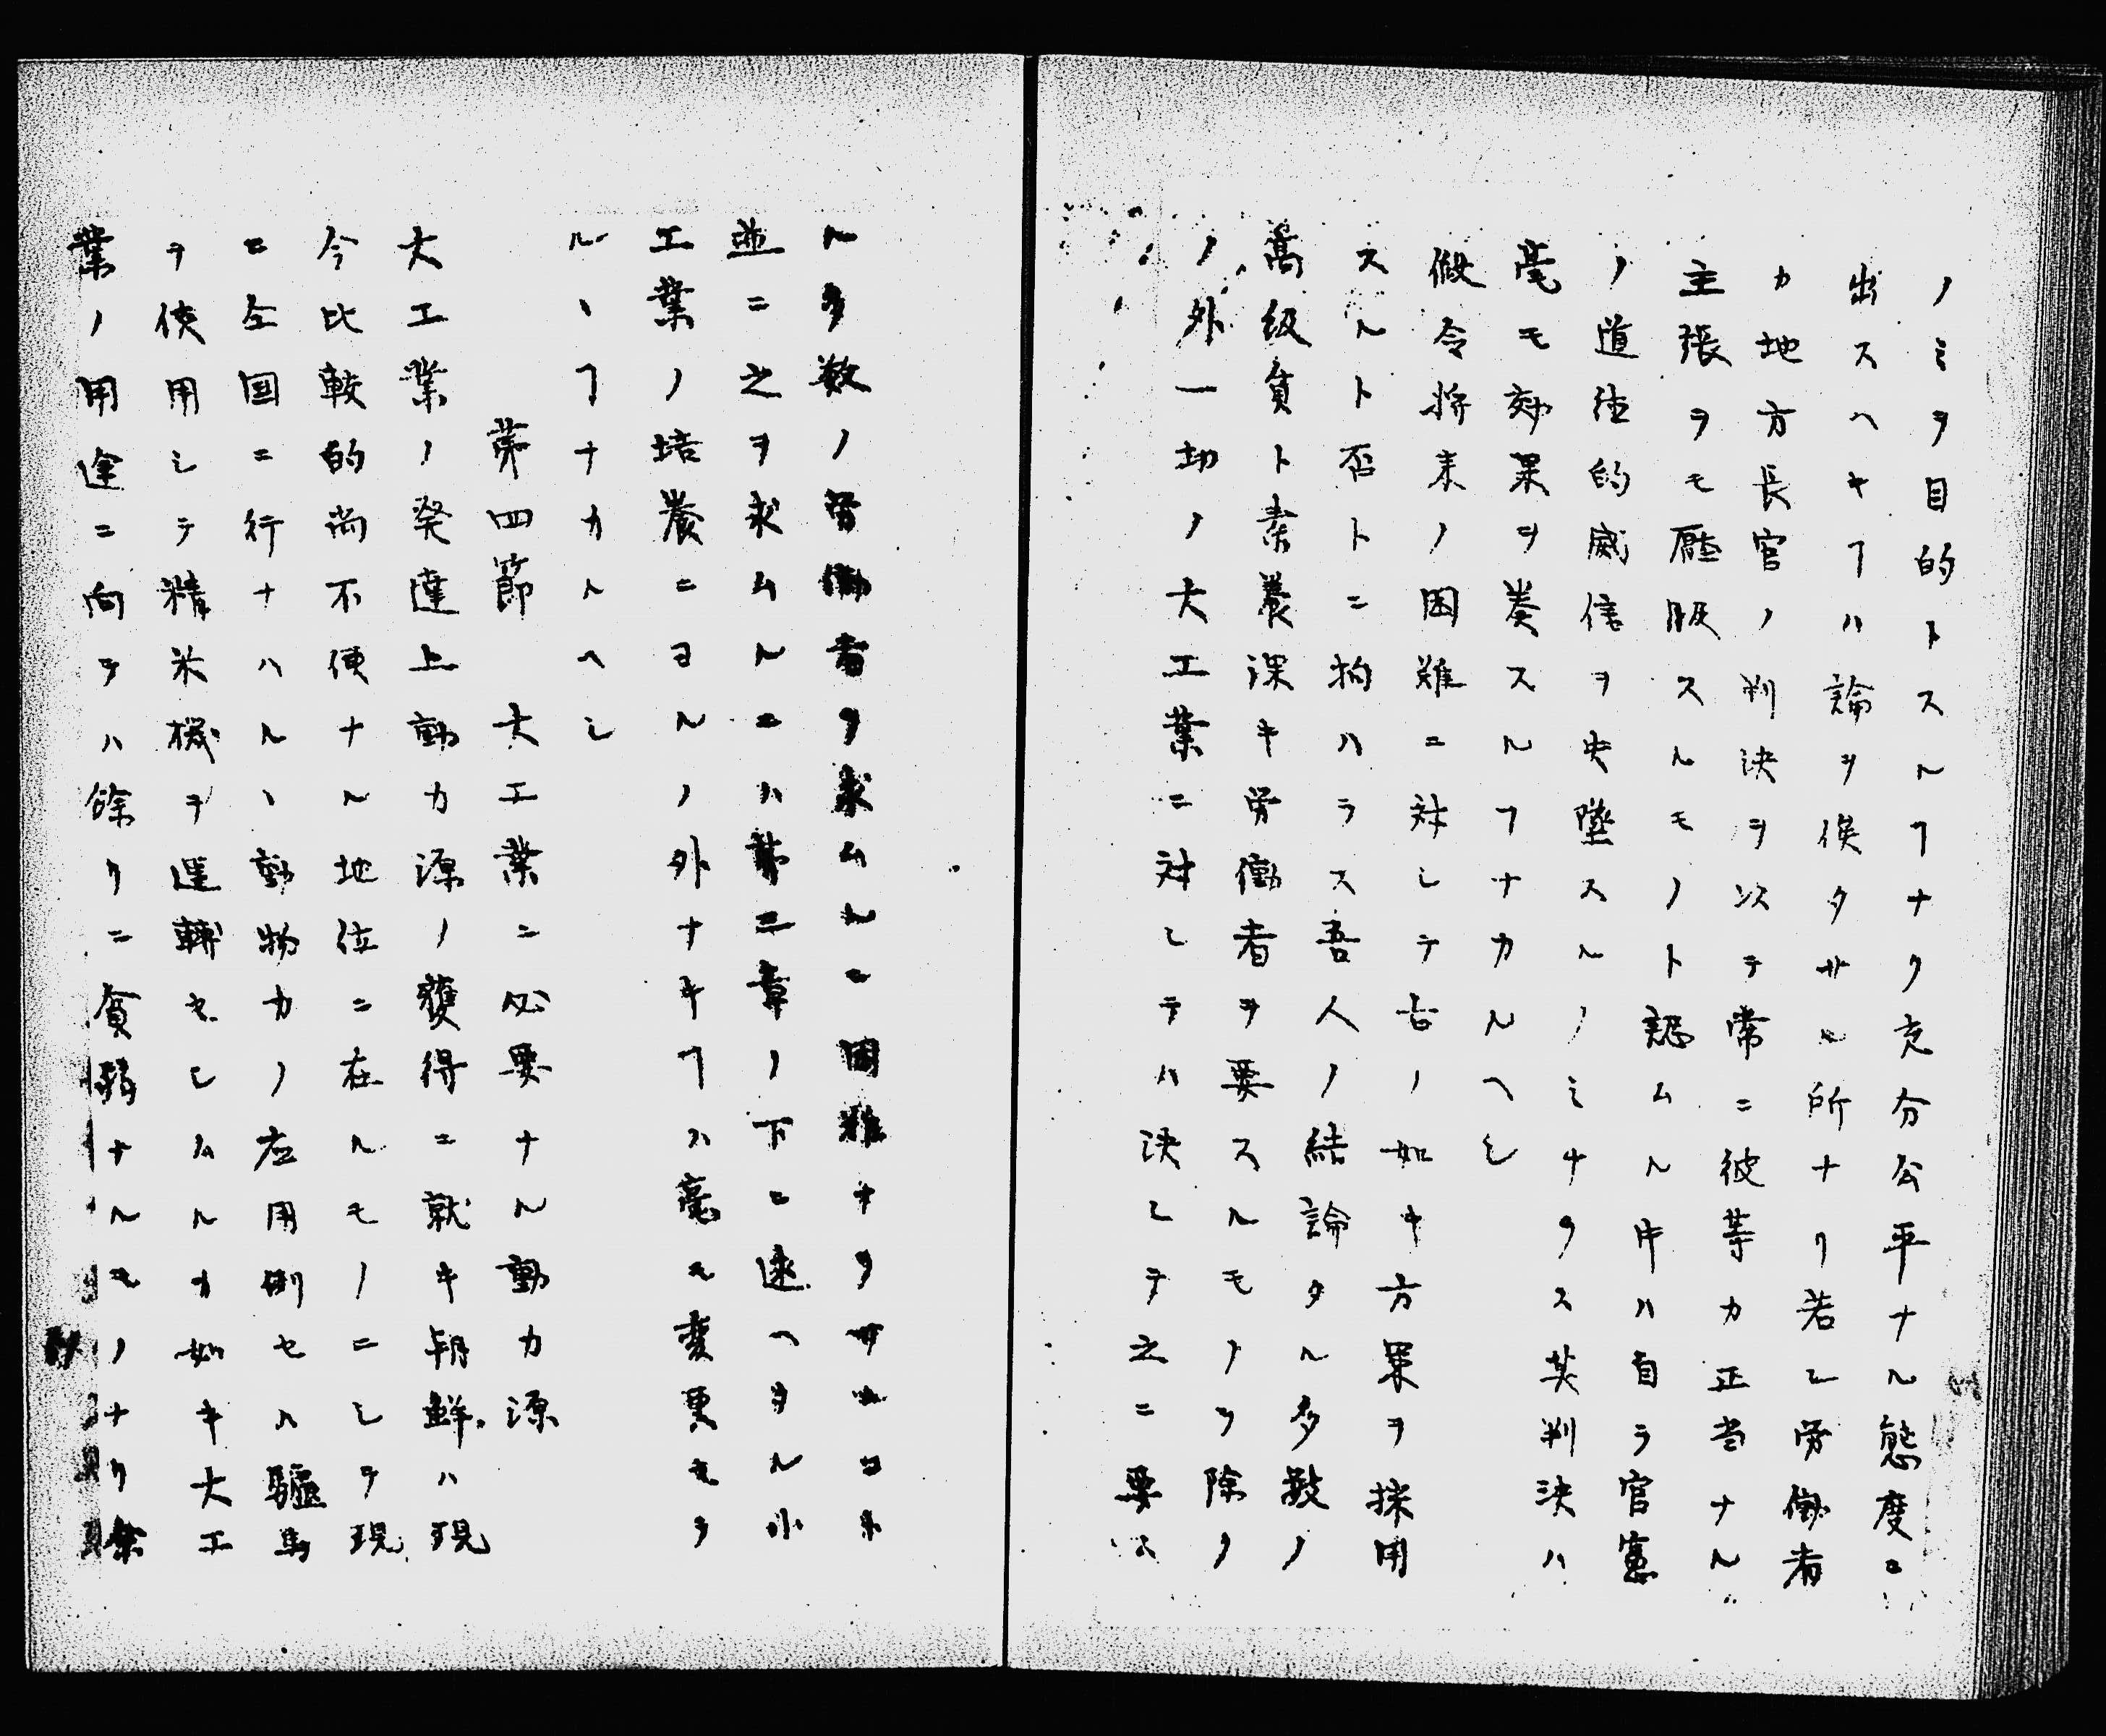 ノミヲ目的トスルヿナク充分公平ナル態度ニ
出スヘキヿハ論ヲ俟タサル所ナリ若シ労働者
カ地方長官ノ判決ヲ以テ常ニ彼等カ正当ナル
主張ヲモ圧服スルモノト認ムル中ハ自ラ官憲
ノ道徳的威信ヲ失墜スルノミナラス其判決ハ
毫モ効果ヲ奏スルヿナカルヘシ
仮令将来ノ困難ニ対シテ右ノ如キ方策ヲ採用
スルト否トニ拘ハラス吾人ノ結論タル多数ノ
高級負ト素養深キ労働者ヲ要スルモノヲ除ク
ノ外一切ノ大工業ニ対シテハ決シテ之ニ要ス
ル多数ノ労働者ヲ求ムルニ困難ナラサルコト
並ニ之ヲ求ムルニハ第二章ノ下ニ述ヘタル小
工業ノ培養ニヨルノ外ナキヿハ毫モ変更セラ
ルヽヿナカルヘシ
第四節　大工業ニ必要ナル動力源
大工業ノ発達上動力源ノ獲得ニ就キ朝鮮ハ現
今比較的尚不便ナル地位ニ在ルモノニシテ現
ニ全国ニ行ナハルヽ動物力ノ応用例セハ驢馬
ヲ使用シテ精米機ヲ運転セシムルカ如キ大工
業ノ用途ニ向テハ余リニ貧弱ナルモノナリ余